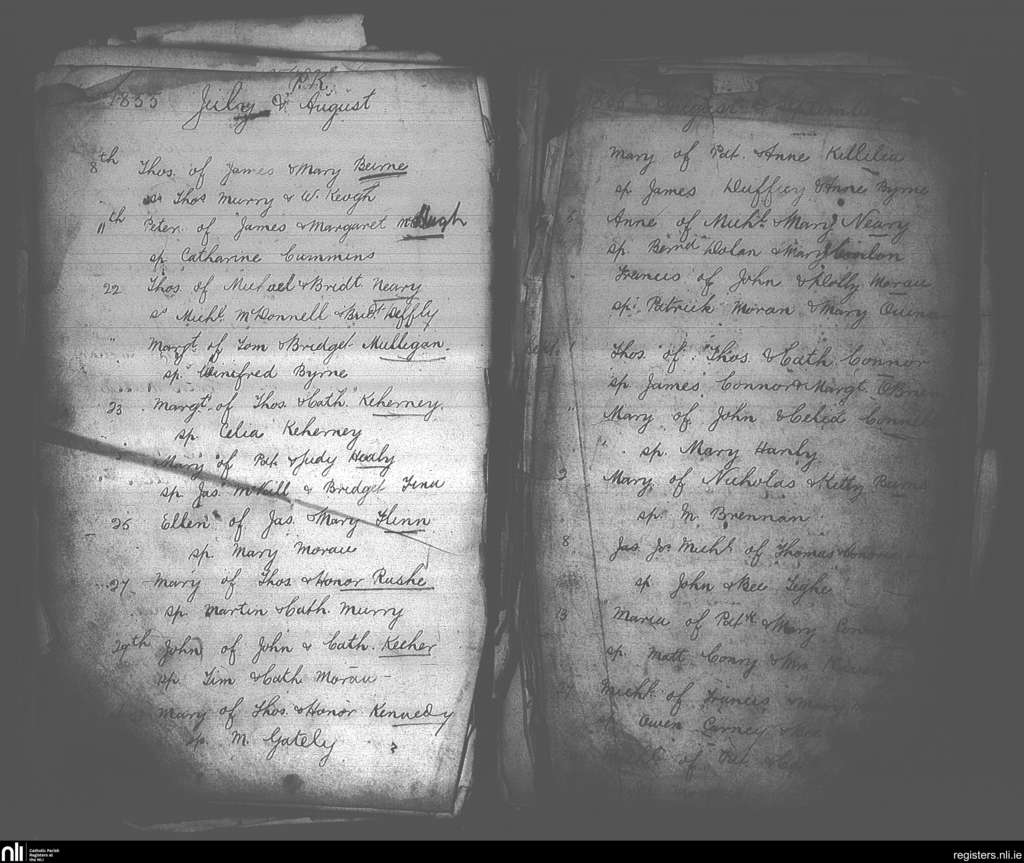 P.K.
1855 July & August
8th Thos. of James & Mary Beirne
sp Thos Murry & W. Keogh
11th Peter of James & Margaret
sp Catharine Cummins
22 Thos. of Michael & Bridt. Neary
ss Michl. McDonnell & Bridt
" Margt. of Tom & Bridget Mulligan.
sp. Winifred Byrne
23 Margt. of Thos. & Cath. Keherney.
sp Celia Keherney
" Mary of Pat. & Judy Healy
sp Jas. & Bridget
26 Ellen of Jas. & Mary Flinn
sp. Mary Moran
27 Mary of Thos & Honor Rushe
sp. Martin & Cath. Murry
29th John of John & Cath. Keeher
sp. Tim & Cath Moran
Mary of Thos. & Honor Kennedy
sp M. Gately
August &
Mary of Pat. & Anne Killilea
sp James Duffiey & Anne Byrne
Anne of Michl. & Mary Neary
sp. Bernd Dolan & Mary Conlon
Francis of John & Molly Moran
sp. Patrick Moran & Mary
Sept. 1 Thos. of Thos. & Cath. Connor
sp. James Connor & Margt.
" Mary of John & Celia
" sp. Mary Hanly
Mary of Nicholas & Kitty
sp. M. Brennan
8 Jas. Michl. of Thomas
sp John & Bee
13 Maria of Patk. & Mary
sp. Matt. Conry &
Michl. of Francis & Mary
sp Owen Carney &
of Pat. &
nli Catholic Parish Registers at the NLI
registers.nli.ie